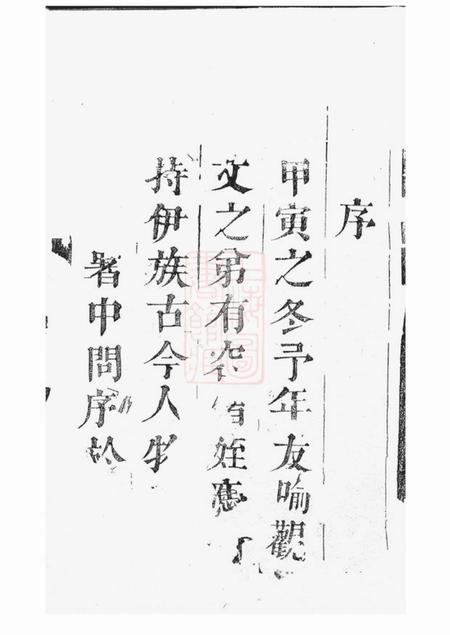 序
甲寅之冬予年友喻觀
文之弟有 姪憲
持伊族古今人物
畧中問序於